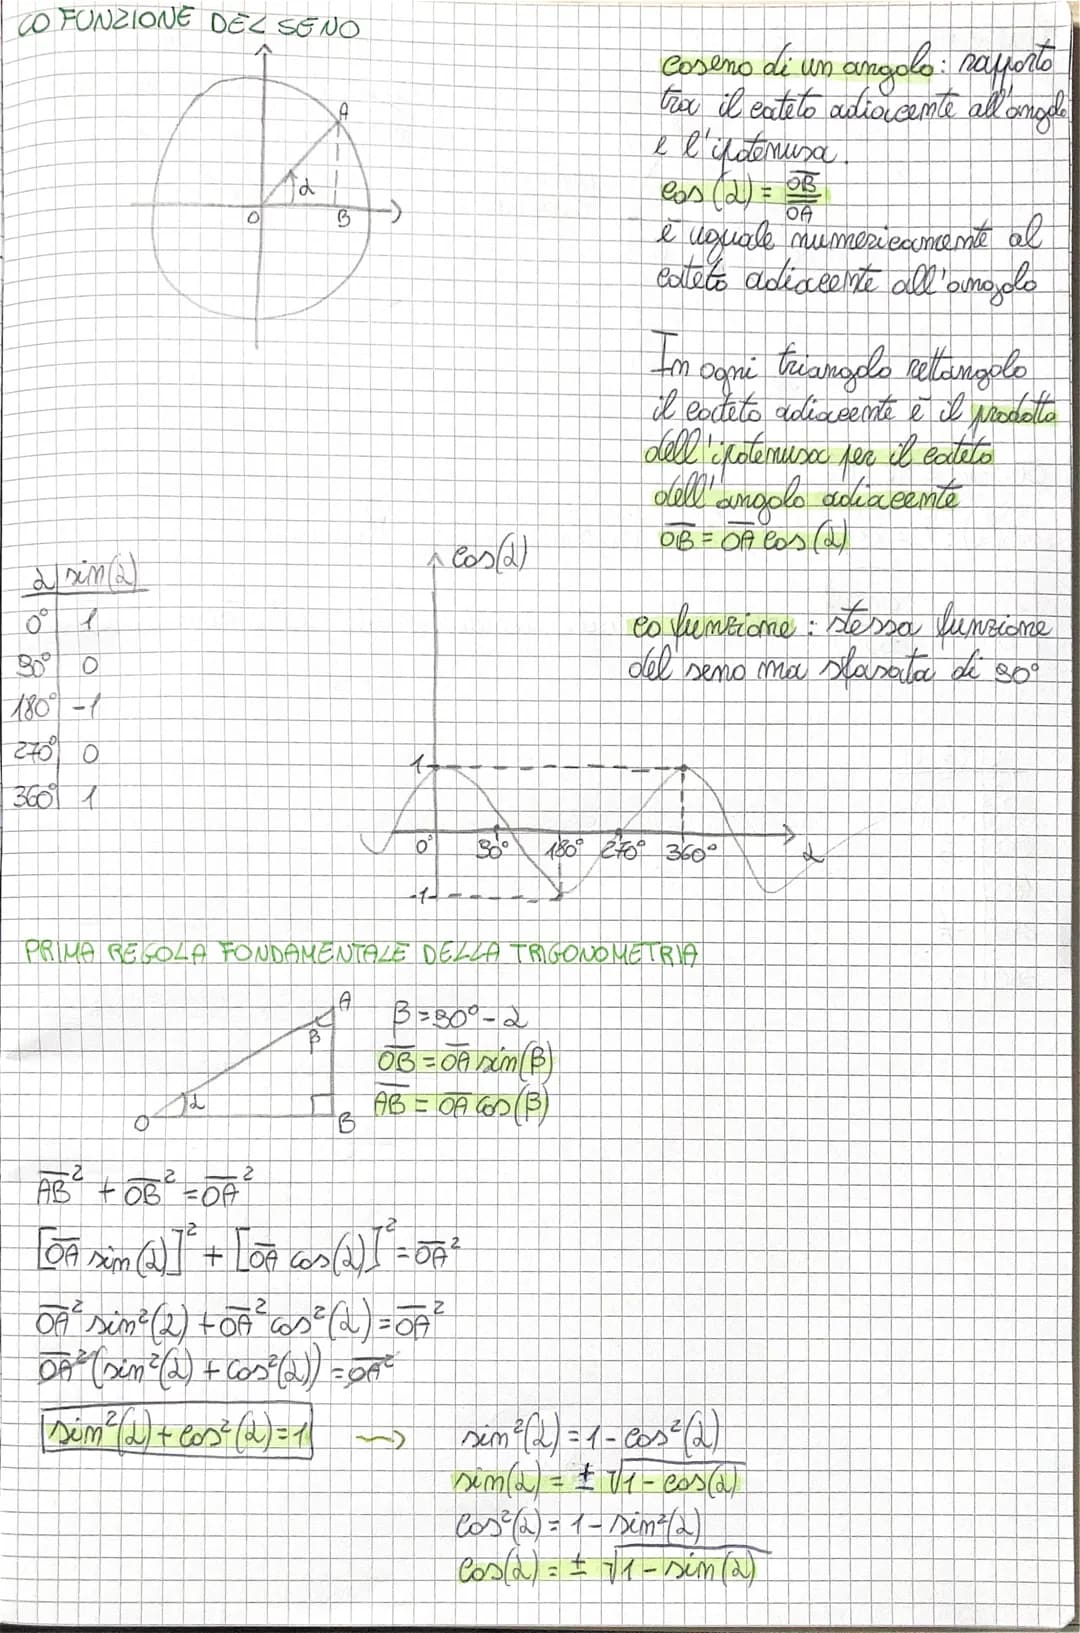 CO FUNZIONE DEL SENO
A
α
O
B
coseno di un angolo: rapporto
tra il cateto adiacente all'angolo
e l'ipotenusa.
cos(α) = OB/OA
è uguale numericamente al
cateto adiacente all'angolo
In ogni triangolo rettangolo
il cateto adiacente è il prodotto
dell'ipotenusa per il cateto
dell'angolo adiacente
OB = OA cos(α)
co funzione: stessa funzione
del seno ma sfasata di 90°
α sin(α)
0° 1
90° 0
180° -1
270° 0
360° 1
cos(α)
1
0° 90° 180° 270° 360° α
-1
PRIMA REGOLA FONDAMENTALE DELLA TRIGONOMETRIA
A
β
α
O
B
β = 90° - α
OB = OA sin(β)
AB = OA cos(β)
AB² + OB² = OA²
[OA sin(α)]² + [OA cos(α)]² = OA²
OA² sin²(α) + OA² cos²(α) = OA²
OA² (sin²(α) + cos²(α)) = OA²
sin²(α) + cos²(α) = 1 → sin²(α) = 1 - cos²(α)
sin(α) = ± √1 - cos(α)
cos²(α) = 1 - sin²(α)
cos(α) = ± √1 - sin(α)